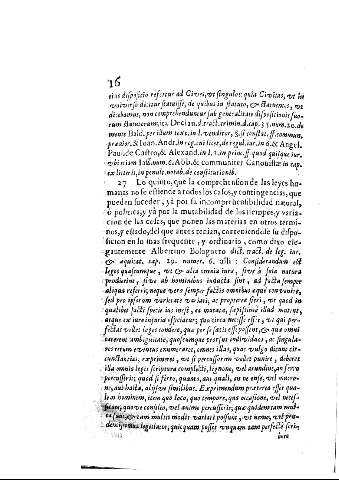 16
eius dispositio refertur ad Cives, vt singulos: quia Civitas, vt in
vniverso dicitur statuisse, de quibus in statuto, & statuentes, vt
dicebamus, non comprehenduntur sub generalitate dispositionis suo-
rum statutorum, ita Decian. d. tract. crimin. d. cap. 35. num. 20. de
mente Bald. per illum text. in l. venditor, §. si constat, ff. commun.
prædior. & Ioan. Andr. in reg. in iure, de regul. iur. in 6. & Angel.
Paul. de Castro, & Alexand. in l. 1. in princ. ff. quod quisque iur.
vbi etiam Iass. num. 6. Abb. & communiter Canonistæ in cap.
ex literis, in penult. notab. de constitutionib.
27 Lo quinto, que la comprehension de las leyes hu-
manas no se estiende a todos los casos, y contingencias, que
pueden suceder, yà por la incomprehensibilidad natural,
ò politica, y yà por la mutabilidad de los tiempos, y varia-
cion de las cosas, que ponen las materias en otros termi-
nos, y estado, del que antes tenian, conteniendose su dispo-
sicion en lo mas frequente, y ordinario, como dixo ele-
gantemente Alberino Bolognetto dict. tract. de leg. iur.
& æquitat. cap. 29. numer. 6. alli: Considerandum est
leges quascumque, vt & alia omnia iura, sive à sola natura
prodierint, sive ab hominibus inducta sint, ad facta semper
aliqua referri, neque vero semper factis omnibus apte convenire,
sed pro ipsorum varietate variari, ac propterea fieri, vt quod in
qualibet facti specie ius insit, ex vetusto, sæpissimè aliud novum,
atque ex iure iniuria efficiatur; quo circa necesse esset, vt qui per-
fectas vellet leges condere, qua per se satis esse possent, & qua omni
carerent ambiguitate, quascumque prorsus individuas, ac singula-
res rerum eventus enumerare, omnes illas, quas vulgo dicunt cir-
cunstantias, exprimere, vt si percussorem velit punire, deberet
illa omnis leges scriptura complecti, ligno ne, vel arundine, an ferro
percusserit; quod si ferro, quanto, an quali, an ne ense, vel mucro-
ne, aut hasta, alijsve similibus. Exprimendum præterea esset qua-
lem hominem, item quo loco, quo tempore, qua occasione, vel neces-
sitate, quo ve consilio, vel animo percusserit; qua quidem tam mul-
ta sunt, & tam multis modis variari possunt, vt nemo, vel pru-
dentissimus legislator, quicquam posset vnquam tam perfectè scri-
bere